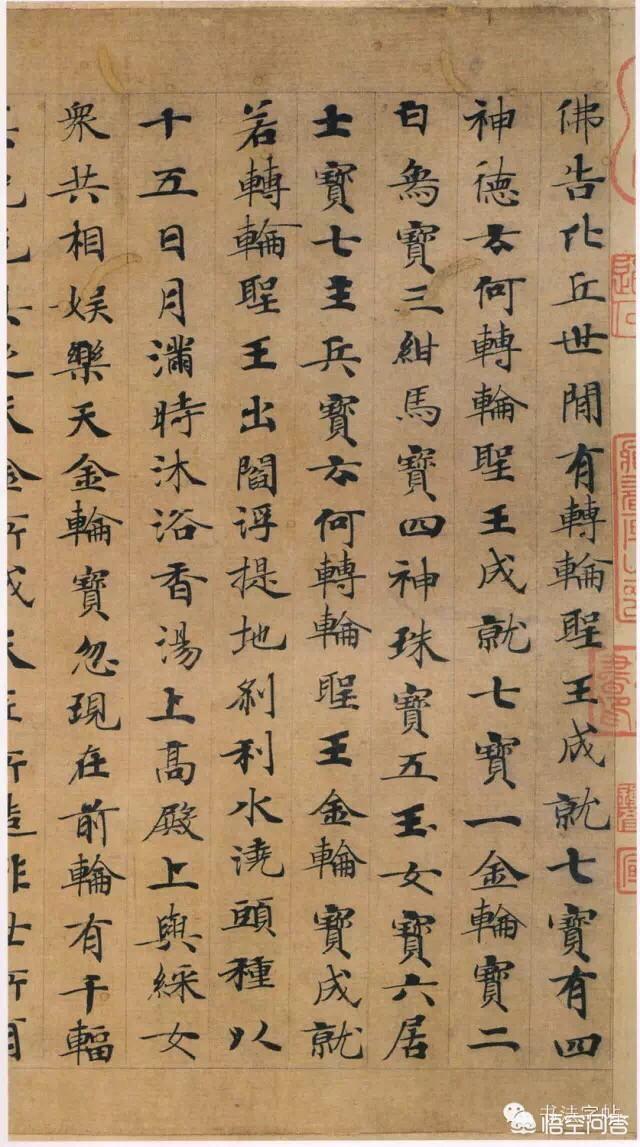 佛告比丘世間有轉輪聖王成就七寶有四
神德云何轉輪聖王成就七寶一金輪寶二
白象寶三紺馬寶四神珠寶五玉女寶六居
士寶七主兵寶云何轉輪聖王金輪寶成就
若轉輪聖王出閻浮提地剎利水澆頭種以
十五日月滿時沐浴香湯上高殿上與綵女
眾共相娛樂天金輪寶忽現在前輪有千輻
天金所成天匠所造非世所有
书法字帖
悟空问答